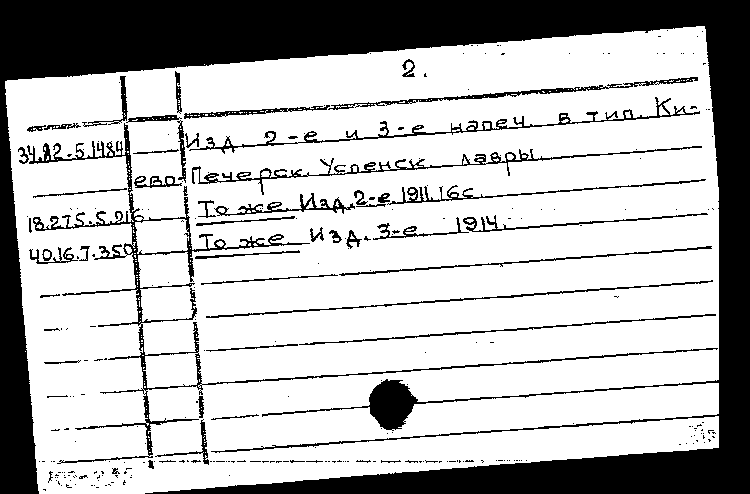 2.
34.82-5.1484 Изд. 2-е и 3-е напеч. в тип. Ки-
ево-Печерск. Успенск. лавры.
18.275.5.216. То же Изд. 2-е 1911. 16с.
40.16.7.350. То же Изд. 3-е 1914.